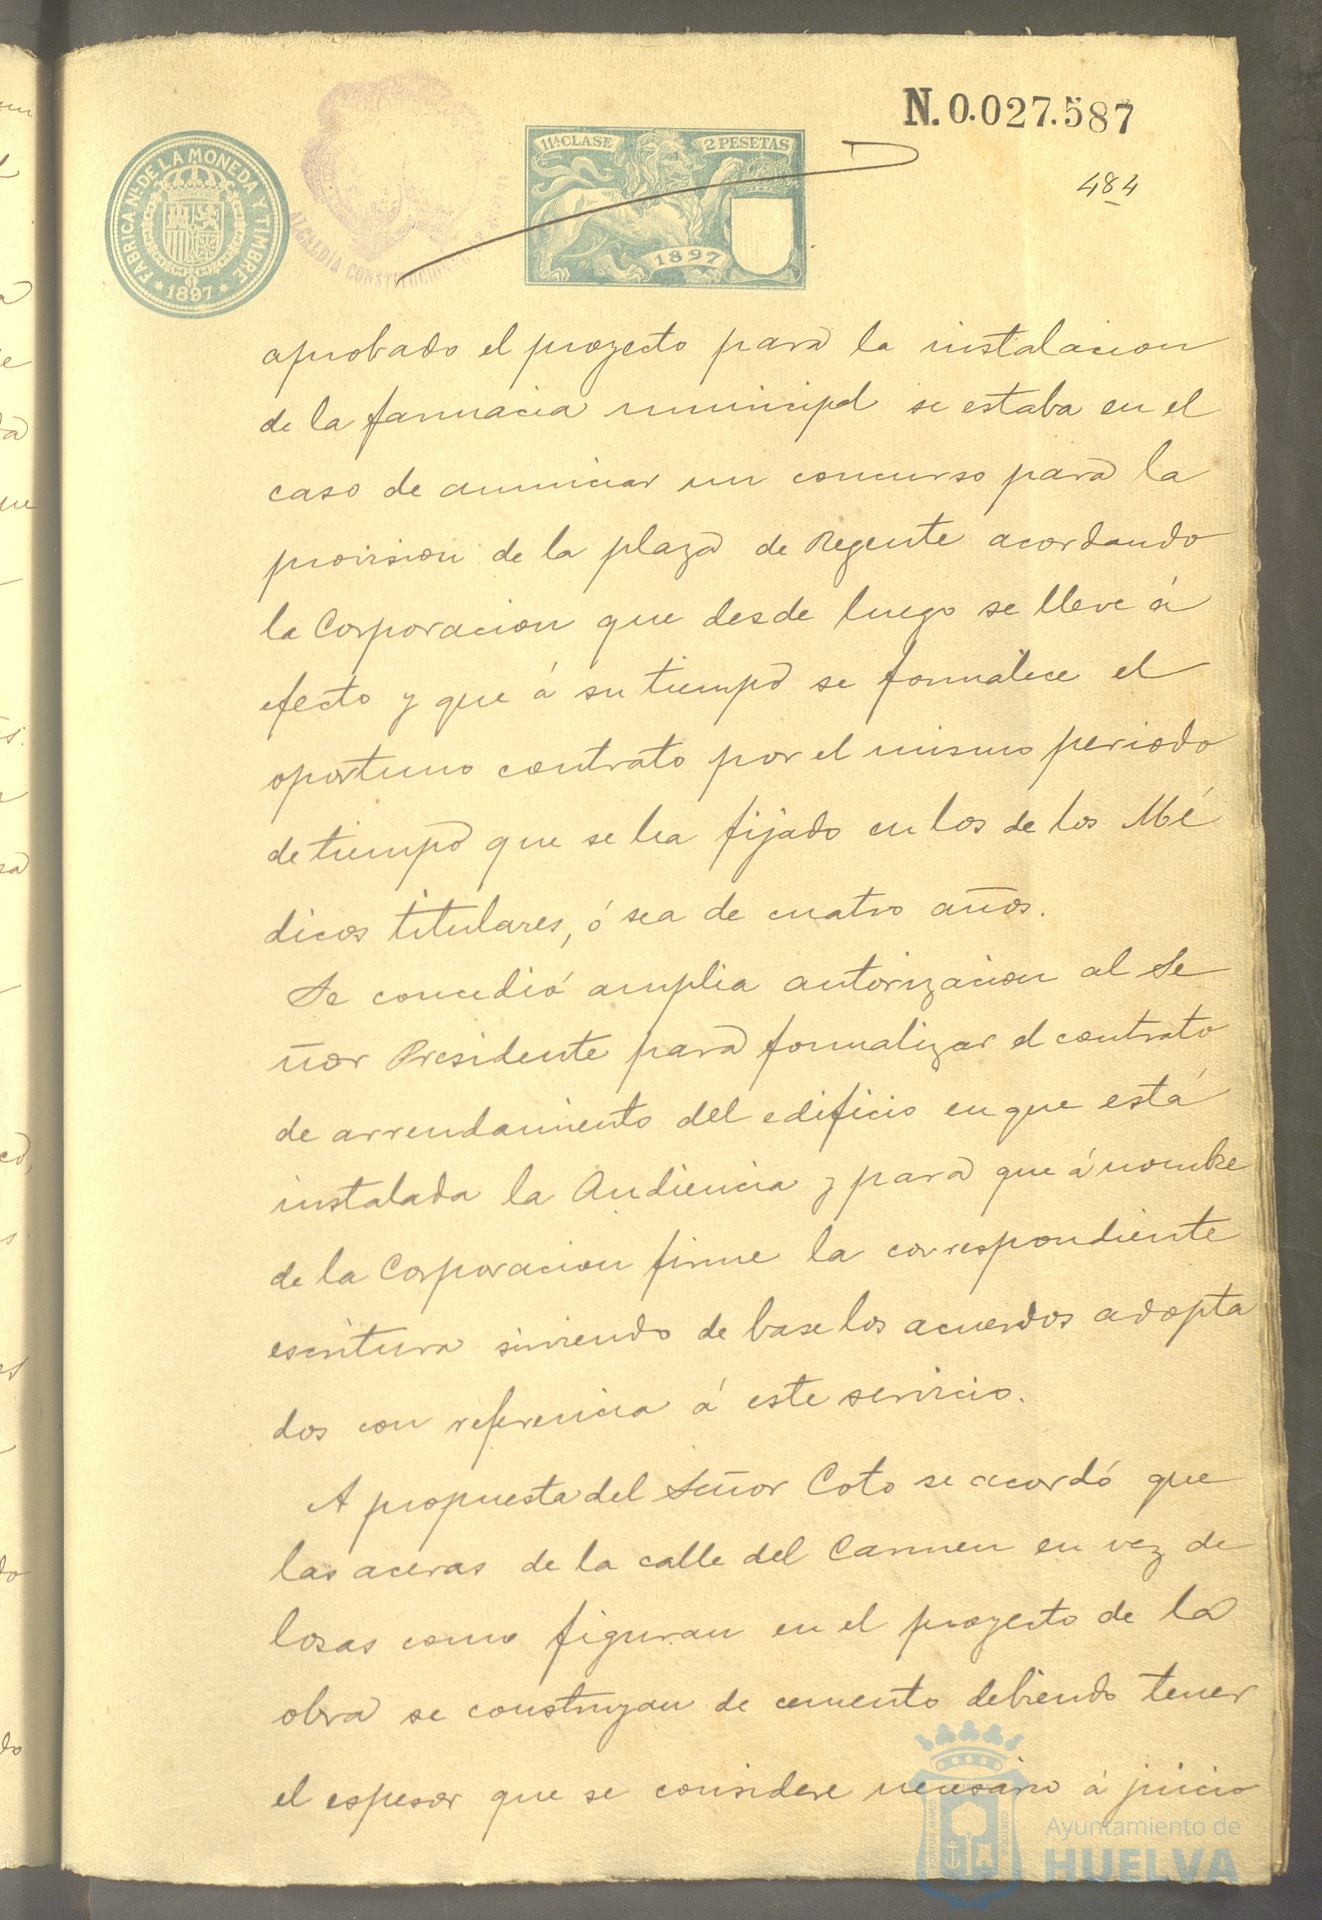 N. 0.027.587
484
FÁBRICA NL. DE LA MONEDA Y TIMBRE
* 1897 *
ALCALDÍA CONSTITUCIONAL
11ª CLASE 2 PESETAS
1897
aprobado el proyecto para la instalacion
de la farmacia municipal se estaba en el
caso de anunciar un concurso para la
provision de la plaza de Regente acordando
la Corporacion que desde luego se lleve á
efecto y que á su tiempo se formalice el
oportuno contrato por el mismo periodo
de tiempo que se ha fijado en los de los Mé
dicos titulares, ó sea de cuatro años.
Se concedió amplia autorizacion al Se
ñor Presidente para formalizar el contrato
de arrendamiento del edificio en que está
instalada la Audiencia y para que á nombre
de la Corporacion firme la correspondiente
escritura sirviendo de base los acuerdos adopta
dos con referencia á este servicio.
A propuesta del Señor Coto se acordó que
las aceras de la calle del Carmen en vez de
losas como figuran en el proyecto de la
obra se construyan de cemento debiendo tener
el espesor que se considere necesario á juicio
Ayuntamiento de
HUELVA